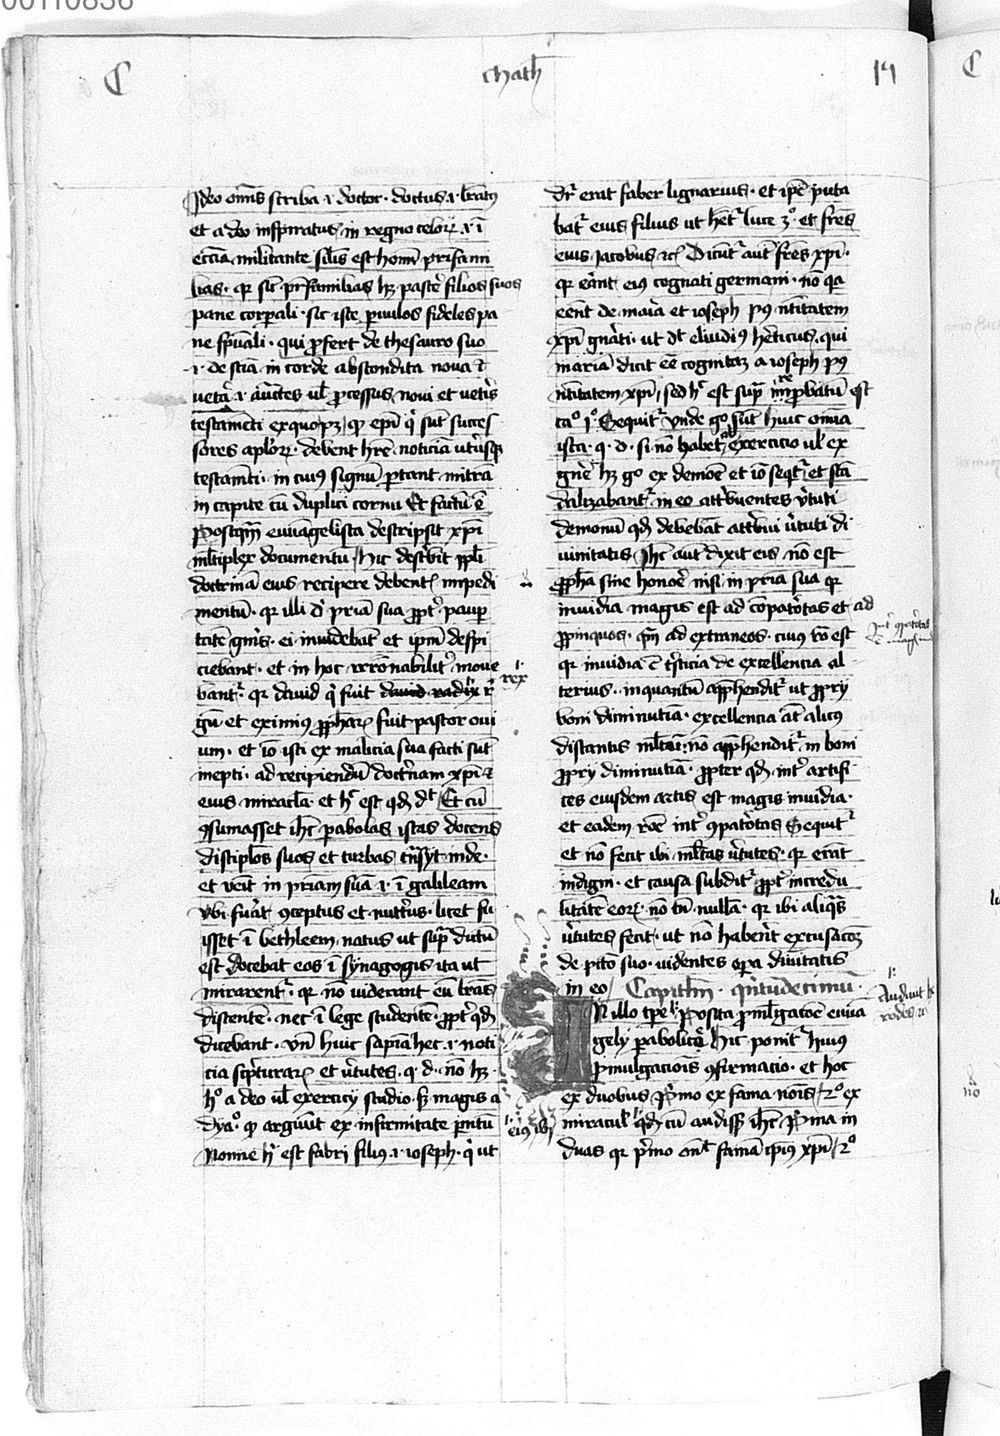 00110836
C
Math̄
14
Ideo om̄s scriba .i. doctor . doctus .i. lr̄atꝰ
et a deo inspiratus in regno celoꝝ .i. ī
eccīa militante sil̄is est homī prīsfami
lias . qr sīc pr̄familias hꝫ pascē filios suos
pane corꝑali . sic iste ꝑuulos fideles pa
ne spūali . qui ꝓfert de thesauro suo
.i. de scīa in corde abscondita noua ⁊
uetā .i. aūctes ul̄ ꝓcessus noui et vetīs
testamēti exquoꝫ ꝙ epī q̇ sūt succes
sores aplōꝝ . debent hr̄e noticiā utīusqꝫ
testamēti . in cuiꝰ signū portant mitrā
in capite cū duplici cornu Et factū ē
Postqm̄ euuāgelista descripsit xpī
ml̄tiplex documentū . Hic describit ipī
doctrinā eius recipere debent impedi
mentū . qr illi d̓ pr̄ia sua ꝓpt̓ pauꝑ
tatē gn̓is . ei inuidebāt et ip̄m despi
ciebant . et in hoc irrōnabilit̓ moue
bant̓ . qr dauid q̇ fuit dauid radix r̄
rex
gū et eximiꝰ ꝓphaꝝ fuit pastor oui
um . et iō isti ex malicia sua facti sūt
inepti . ad recipiendū doct̓nam xpī ⁊
eius miracl̄a . et h̓ est qd̄ dt̄ Et cū
ꝯsumasset ih̄c ꝑabolas istas docens
discipl̄os suos et turbas tn̄sijt inde .
et venit in pr̄iam suā .i. ī galileam
vbi fūat ꝯceptus et nutt̓us . licet fu
isset ī bethleem natus ut sup̄ dictū
est docebat eos ī synagogis ita ut
mirarent̓ . qr nō uiderant eū lr̄as
discentē . nec ī lege studentē . ꝓpt̓ qd̄
dicebant . vn̄ huic sapīa hec .i. noti
cia scripturaꝝ et v̓tutes . q . d . nō hꝫ
hº a deo ul̄ exercicij studio . sꝫ magis a
dyaº . ꝙ arguūt ex infirmitate parentū
eius ibi
Nonne h̓ est fabri filius .i. ioseph . q̇ ut
dr̄ erat faber lignarius . et ip̄e puta
bat̓ eius filius ut hēt̓ luce 3º . et fr̄es
eius Jacobus ⁊c̄ Dicūt̓ aūt fr̄es xpī .
qr erāt eiꝰ cognati germani . nō qa
eēnt de maria et ioseph pꝰ nītitatem
xpī gnāti . ut dt̄ eluidiꝰ hēticus . qui
mariā dicit eē cognitaꝫ a ioseph pꝰ
nītitatem xpī . sed h̓ est sup̄ improbatū est
caº 1º Sequit̓ Vnde gº sūt huic omīa
ista . q . d . si nō habet ab exercicio ul̄ ex
gn̄e hꝫ gº ex demoē et iō seqt̓ et scā
dalizabant̓ in eo attribuentes v̓tuti
demonū qd̄ debebāt attribui v̓tuti di
uinitatis Ih̄c aūt dixit eis nō est
ꝓph̄a sine honoē nisi in pr̄ia sua qr
inuidia magis est ad cōpat̓otas et ad
ꝓpinquos . qm̄ ad extraneos . cuius rō est
qr inuidia ē tristicia de excellencia al
terius . inquantū app̄hendit̓ ut ꝓprij
boni diminutiua . excellencia aūt alicꝰ
distantis ml̄tū nō app̄hendit̓ in boni
ꝓprij diminutiua . ꝓpter qd̄ int̓ artifi
ces eiusdem artis est magis inuidia .
et eadem rōe int̓ ꝯpat̓otas Sequit̓
et nō fecit ibi ml̄tas v̓tutes . qr erāt
indigni . et causa subdit̓ ꝓpt̓ incredu
litatē eoꝝ . nō tn̄ nulla . qr ibi aliq̄s
v̓tutes fecit . ut nō haberēt excusacōꝫ
de pctō suo . uidentes oꝑa diuītatis
in eo Capitlm̄ . qr̄tudecimū .
IN illo tp̄e Posita ꝓml̄gacōe euua
Audiuit he
rodes ⁊c
gelij ꝑabolica . Hic ponit̓ huiꝰ
ꝓmulgacionis ꝯfirmacio . et hoc
ex duobus Pᷓmo ex fama nōis / 2º ex
miracul̄ / qd̄ cū audisset ih̄c Prima in
duas qr primo ōndit famā ipiꝰ xpī / 2º